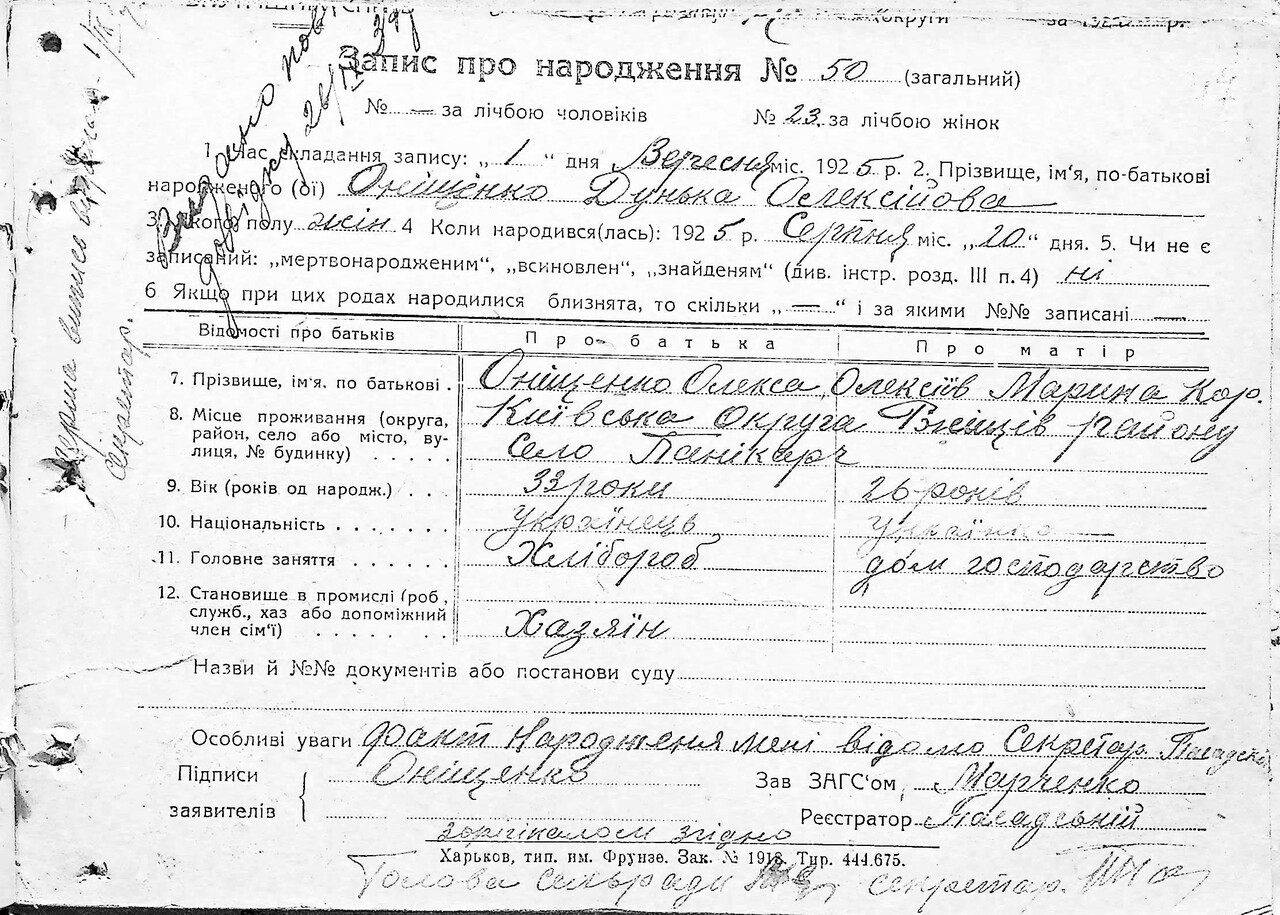 округи за 192 р.
Запис про народження № 50 (загальний)
№ — за лічбою чоловіків № 23. за лічбою жінок
1. Час складання запису: „ 1 “ дня Вересня міс. 1925 р. 2. Прізвище, ім'я, по-батькові
народженого (ої) Оніщенко Дунька Олексійова
3. Якого полу жін 4 Коли народився(лась): 1925 р. Серпня міс. „20“ дня. 5. Чи не є
записаний: „мертвонародженим“, „всиновлен“, „знайденям“ (див. інстр. розд. III п.4) ні
6 Якщо при цих родах народилися близнята, то скільки „ — “ і за якими №№ записані —
Відомості про батьків Про батька Про матір
7. Прізвище, ім'я, по батькові . Оніщенко Олекса Олексіїв Марина Кор.
8. Місце проживання (округа, Київська округа Ржищів району
район, село або місто, ву-
лиця, № будинку) . . . . . село Панікарч
9. Вік (років од народж.) . . . 33 роки 26 років
10. Національність . . . . . . . українець українка
11. Головне заняття . . . . . . Хлібораб дом господарство
12. Становище в промислі (роб.,
служб., хаз або допоміжний
член сім'ї) . . . . . . . Хазяїн
Назви й №№ документів або постанови суду
Особливі уваги Факт Народженя мені відомо Секретар
Підписи Оніщенко Зав ЗАГС'ом Марченко
заявителів Реєстратор Пасадській
з орігіналом згідно
Харьков, тип. им. Фрунзе. Зак. № 1918. Тир. 444.675.
Голова сельради секретар
Видано пов
довідку 26/ 39
перша випись
секретар.